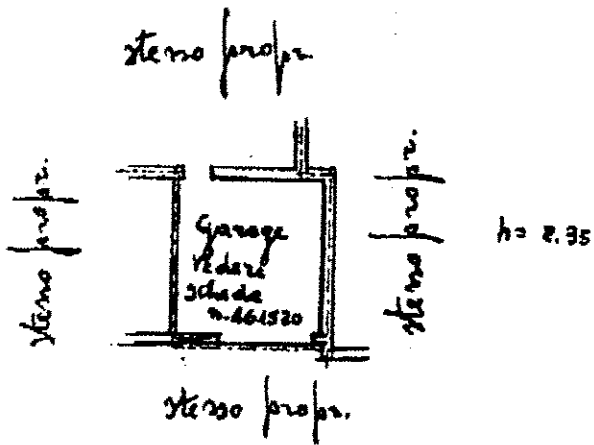 stesso propr.
stesso propr.
Garage
Vedasi
scheda
n. 461520
stesso propr.
h= 2.35
stesso propr.